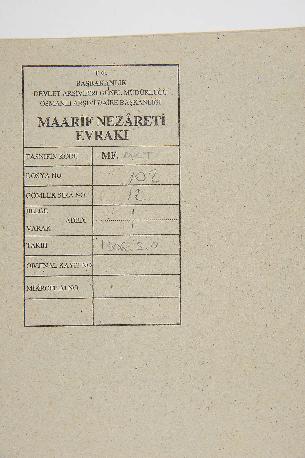 T.C.
BAŞBAKANLIK
DEVLET ARŞİVLERİ GENEL MÜDÜRLÜĞÜ
OSMANLI ARŞİVİ DAİRE BAŞKANLIĞI
MAARİF NEZÂRETİ
EVRAKI
TASNİFİN KODU MF. MKT
DOSYA NO 102
GÖMLEK SIRA NO 12
BELGE 1
ADEDİ
VARAK 1
TARİH
ORİJİNAL KAYIT NO
MİKROFİLM NO